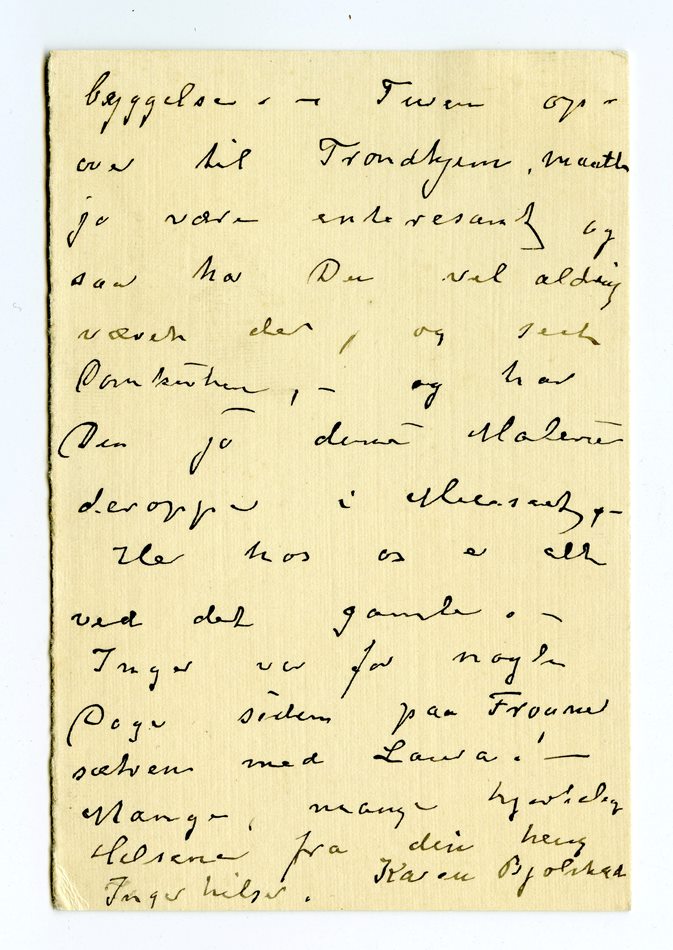 byggelse. – Turen op-
over til Trondhjem, maatte
jo være enteresant og
saa har Du vel aldrig
været der, og seet
Domkirken, – og har
Du jo dine Malerier
deroppe i Museet, –
Her hos os er alt
ved det gamle. –
Inger var for nogle
Dage siden paa Frogner
sætren med Laura. –
Mange, mange hjertelig
Hilsener fra din heng
Inger hilser. Karen Bjølstad